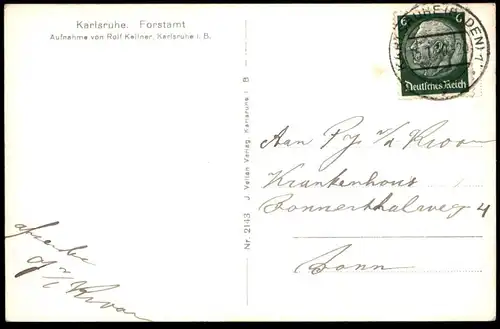 Karlsruhe. Forstamt
Aufnahme von Rolf Kellner, Karlsruhe i. B.
KARLSRUHE (BADEN) 1
6 6
Deutsches Reich
Nr. 2143 J. Velten Verlag, Karlsruhe i. B
Aan Py. v/d Kroon
Krankenhous
Bonnerthalweg 4
Bonn
v/d Kroon